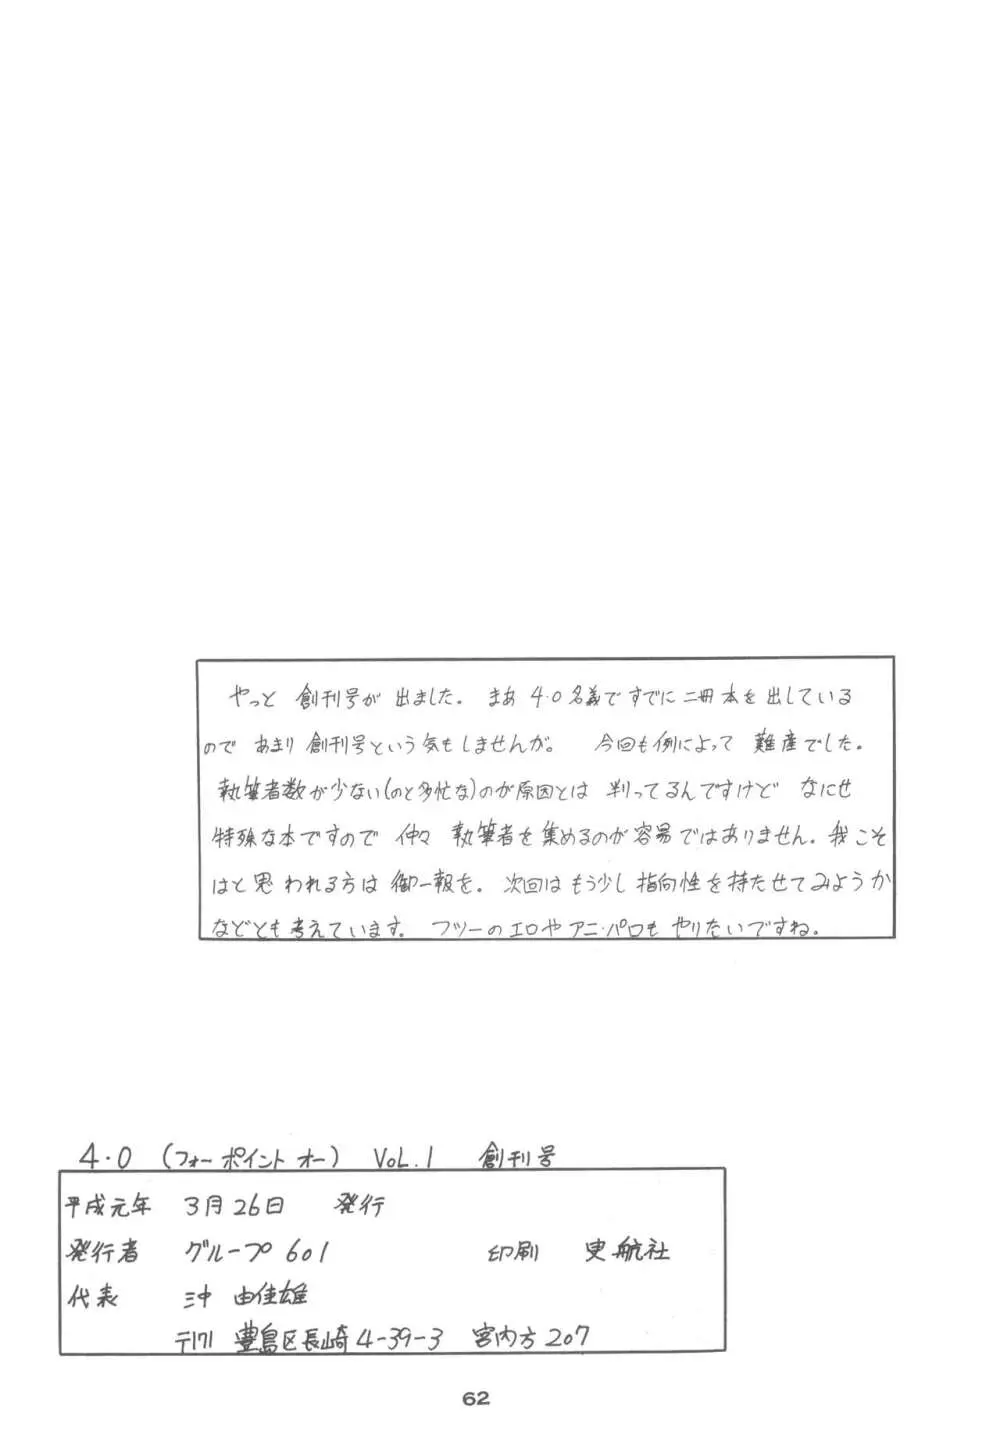 やっと 創刊号が 出ました。 まあ 4.0名義ですでに二冊本を出している
ので あまり 創刊号という気もしませんが。 今回も例によって 難産でした。
執筆者数が少ない(のと多忙な)のが原因とは 判ってるんですけど なにせ
特殊な本ですので 仲々 執筆者を集めるのが容易ではありません。我こそ
はと思われる方は 御一報を。次回はもう少し指向性を持たせてみようか
などとも考えています。 フツーのエロやアニ・パロも やりたいですね。
4・0 (フォー ポイント オー) VOL.1 創刊号
平成元年 3月26日 発行
発行者 グループ601 印刷 吏航社
代表 沖 由佳雄
〒171 豊島区長崎4-39-3 宮内方207
62